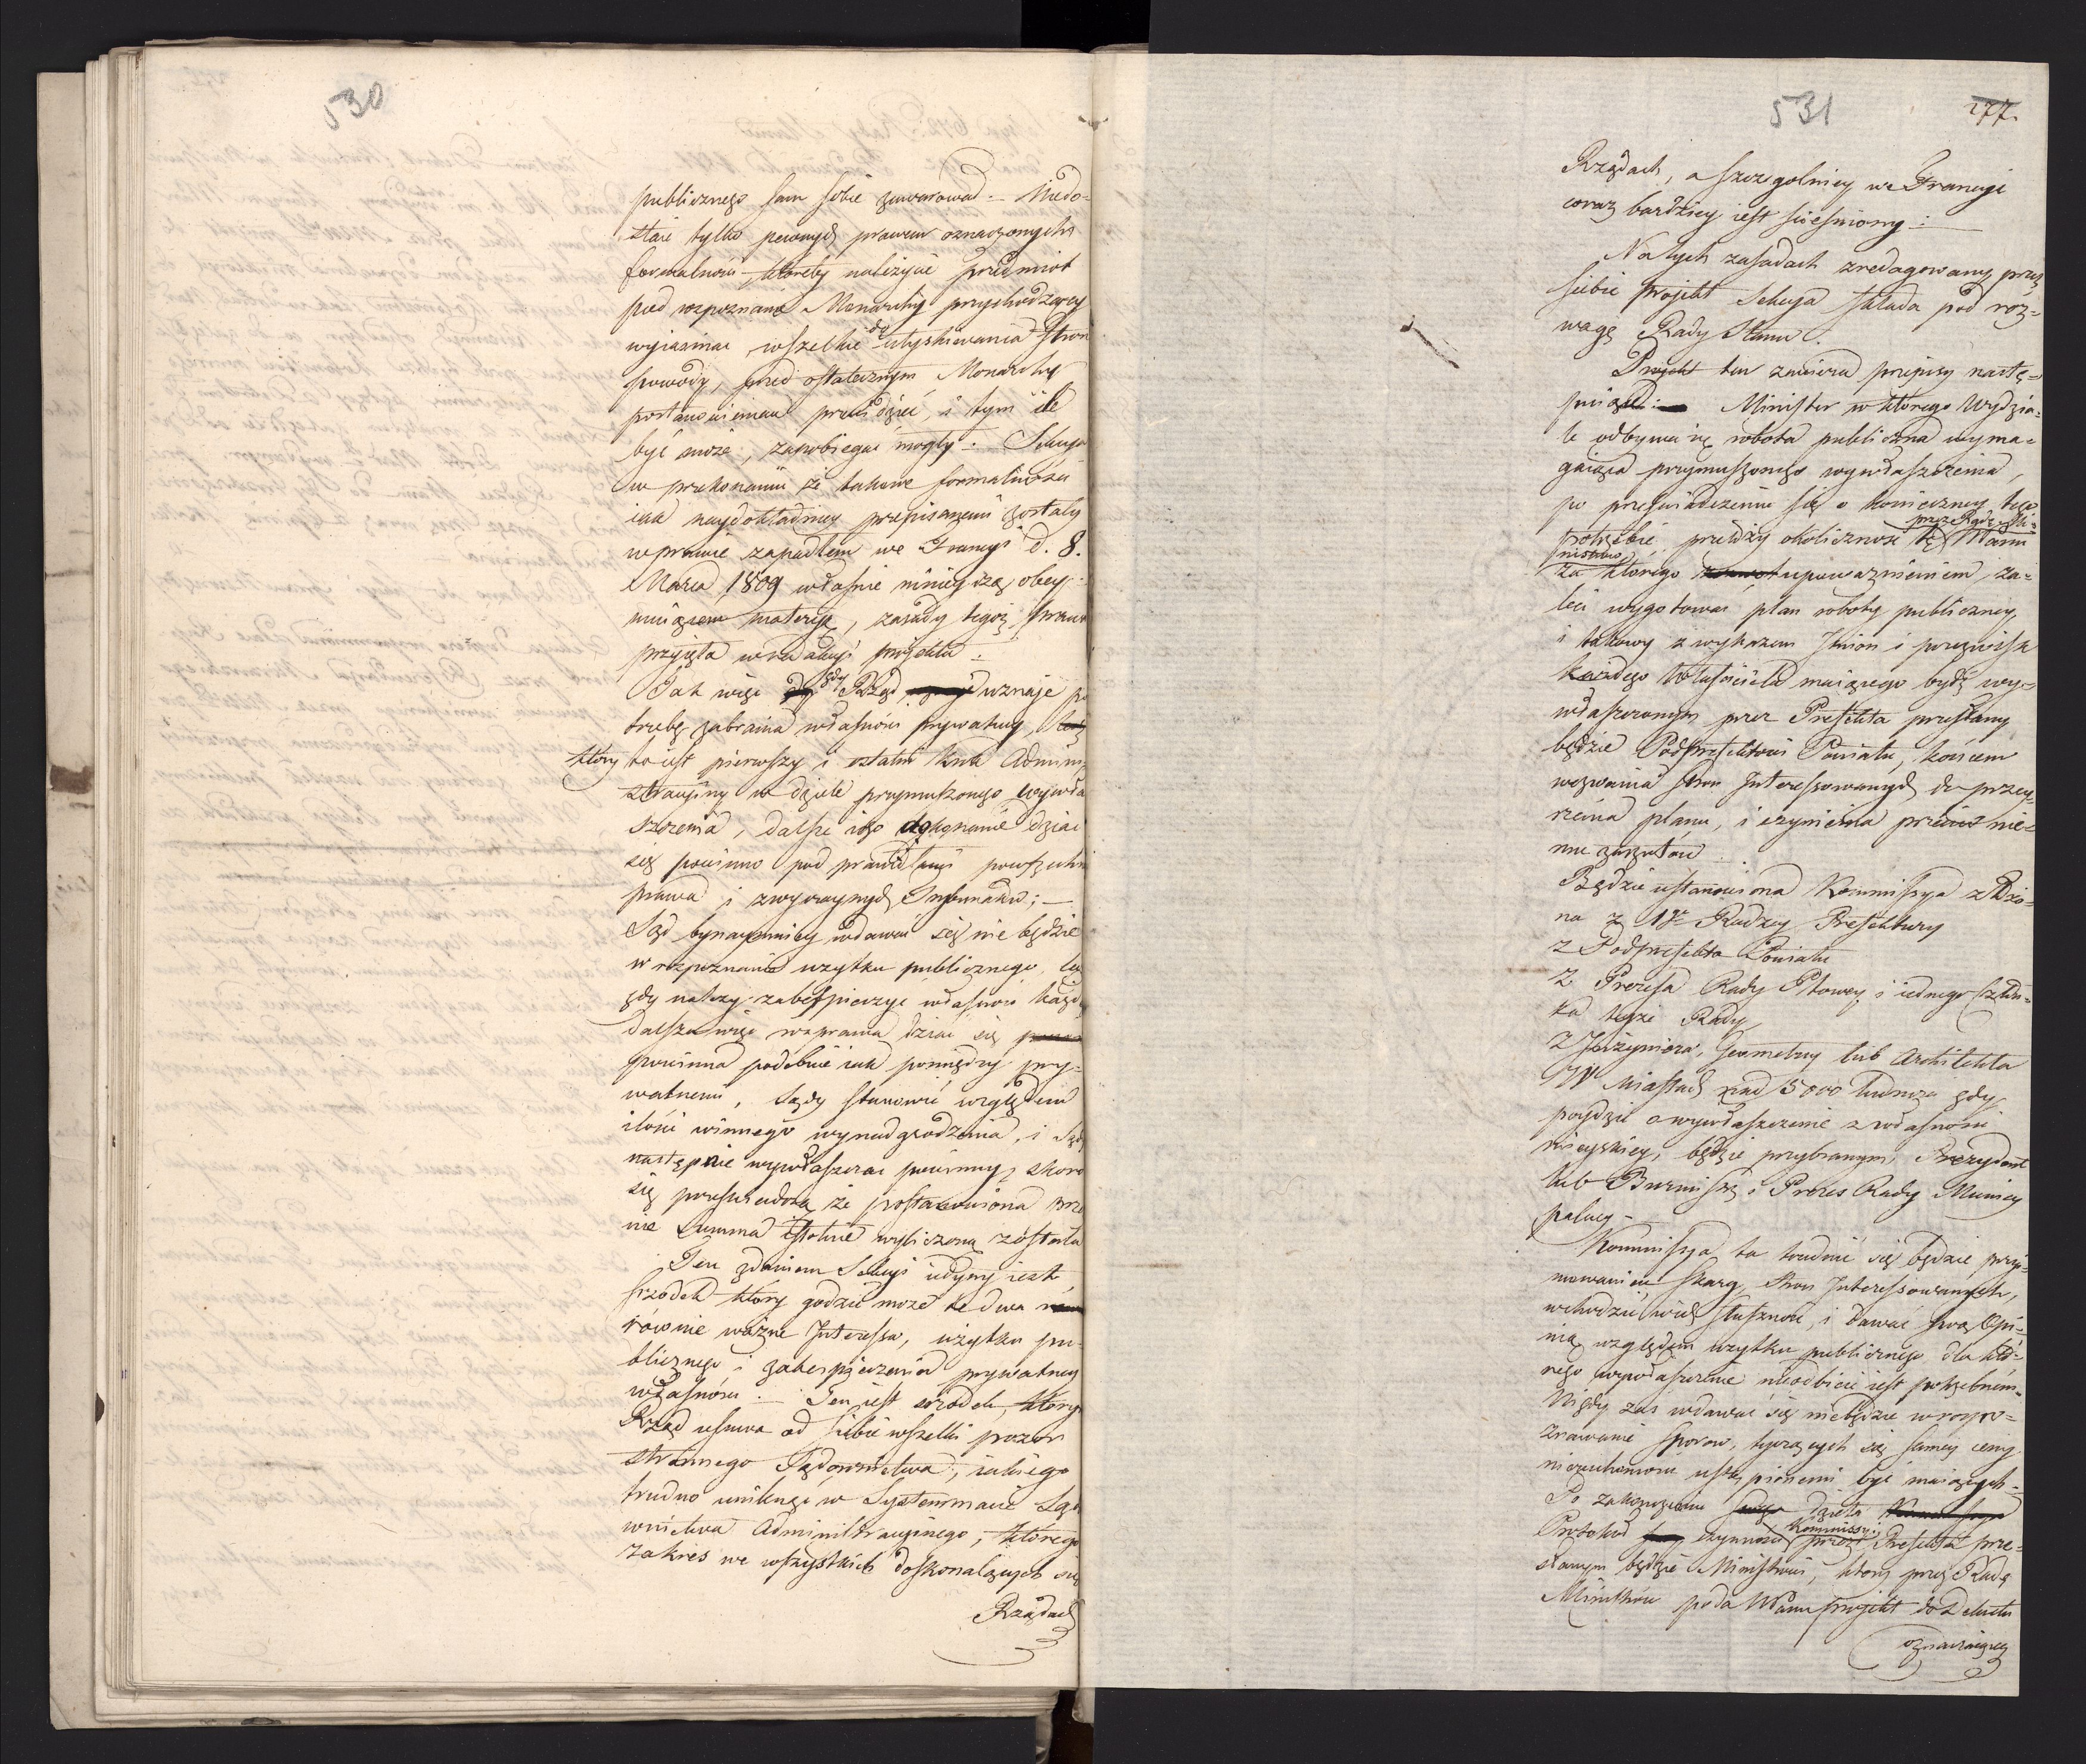 530
publicznego sam sobie zawarował. – Niedo=
staie tylko pewnych prawem oznaczonych
formalności któreby należycie przedmiot
pod rozpoznanie Monarchy przychodzący
wyiaśniać, wszelkie do utyskiwania stron
powody, przed ostatecznym Monarchy
postanowieniem przewidzieć, i tym ile
być może, zapobiegać mogły. – Sekcya
w przekonaniu że takowe formalności
iak naydokładniey przepisanemi zostały
w prawie zapadłem we Francyi d. 8.
Marca 1809 właśnie ninieyszą obey=
muiącem materyę, zasady tegoż prawa
przyięła w redakcyi projektu. –
Jak więc gdy Rząd uznaje po
trzebę zabrania własności prywatney,
który to iest pierwszy i ostatni krok Admini
stracyiny w dziele przymuszonego wywła
szczenia, dalsze iego dokonanie dziać
się powinno pod prawidłami powszechne
prawa i zwyczaynych Trybunałów; –
Sąd bynaymniey wdawać się nie będzie
w rozpoznanie użytku publicznego, lecz
gdy należy zabespieczyć własność każde
dalsza więc rozprawa dziać się
powinna podobnie iak pomiędzy pry=
watnemi, Sądy stanowić względem
ilości winnego wynadgrodzenia, i Sądy
następnie wywłaszczać powinny, skoro
się przeświadczą że postanowiona prze
nie Summa istotnie wyliczoną została
Ten zdaniem Sekcyi iedyny iest
srzodek który godzić może te dwa
równie ważne Interessa, użytku pu=
blicznego i zabespieczenia prywatney
własności. – Ten iest srzodek, którym
Rząd usuwa od siebie wszelki pozor
stronnego Sądownictwa, iakiego
trudno uniknąć w Systemmacie Sądo
wnictwa Administracyinego, którego
zakres we wszystkich doskonalących się
Rządach
531
277.
Rządach, a szczegolniey we Francyi
coraz bardziey iest ścieśniony. –
Na tych zasadach zredagowany przez
siebie projekt Sekcya składa pod roz=
wagę Rady Stanu.
Projekt ten zawiera przepisy nastę=
puiące: Minister w którego Wydzia=
le odbywa się robota publiczna wyma=
gaiąca przymuszonego wywłaszczenia,
po przeświadczeniu się o konieczney tego
przez Radę Mi=
potrzebie przełoży okoliczność tę WPanu
nistrów,
za którego upoważnieniem, za=
leci wygotować plan roboty publiczney
i takowy z wykazem Imion i przezwisk
każdego Właściciela maiącego bydź wy=
właszczonym przez Prefekta przesłany
będzie Podprefektowi Powiatu, końcem
wezwania stron Interessowanych do przey=
rzenia planu, i czynienia przeciw nie=
mu zarzutów.
Będzie ustanowiona Kommissya złożo=
na z 1go Radzcy Prefektury
z Podprefekta Powiatu
z Prezesa Rady Pttowey i iednego Człon=
ka teyże Rady
z Inżyniera, Geometry lub Architekta
W Miastach nad 5000 ludności gdy
poydzie o wywłaszczenie z własności
mieyskiey, będzie przybranym Prezydent
lub Burmistrz i Prezes Rady Municy
palney –
Kommissya ta trudnić się będzie przy=
mowaniem skarg stron Interessowanych,
wchodzić w ich słuszność, i dawać swą Opi=
nią względem użytku publicznego dla któ=
rego wywłaszczenie nieodbicie iest potrzebném.
Nigdy zaś wdawać się nie będzie w rozpo=
znawanie sporow, tyczących się samey ceny
nieruchomości ustąpionemi być maiących. –
Po zakończeniu swego dzieła
Kommissyi
Protokuł czynności przez Prefekta prze=
słanym będzie Ministrowi, ktory przez Radę
Ministrów poda WPanu projekt do Dekretu
oznaczaiącey